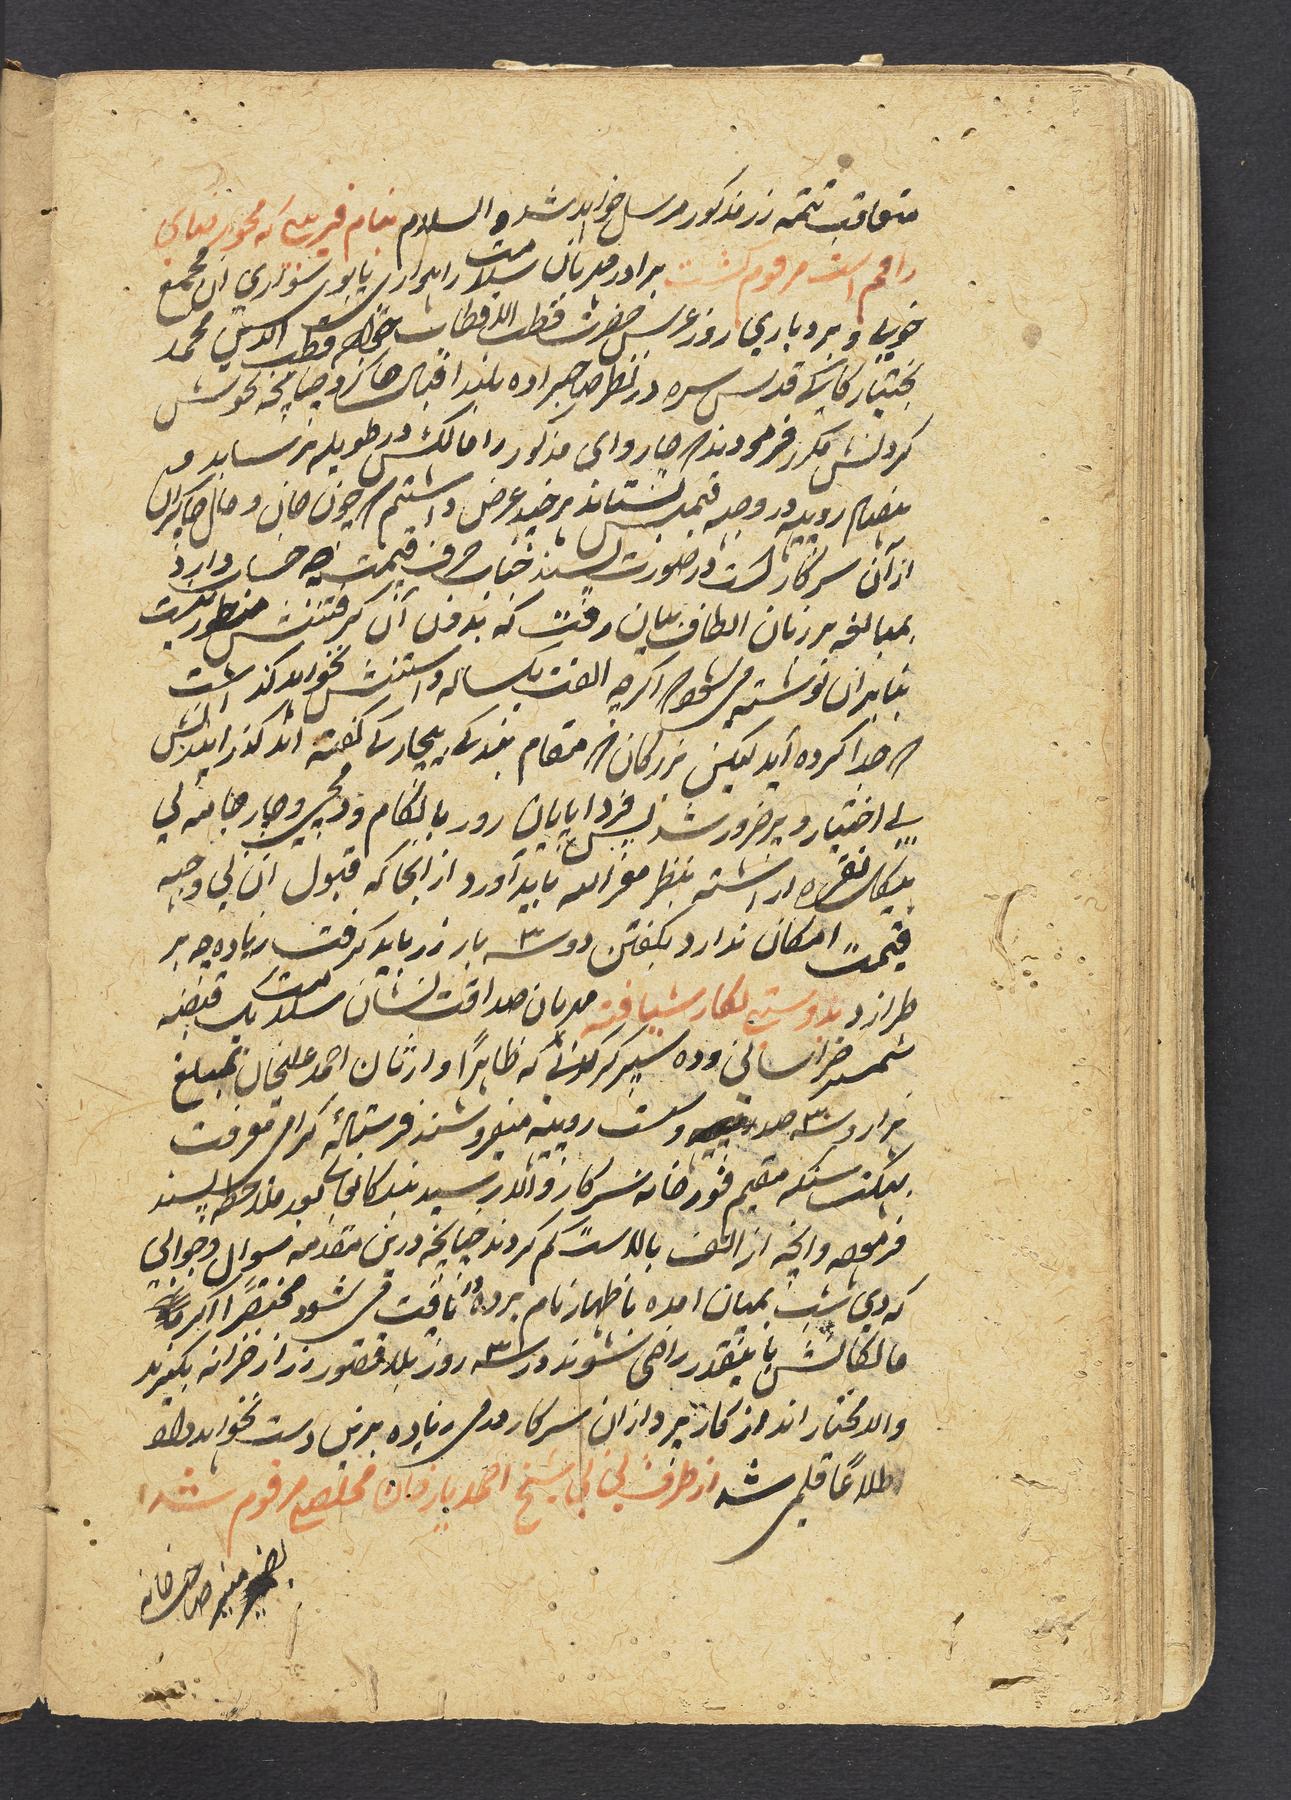 متعاقب تتمه زر مذکور مرسل خواهد شد والسلام بنام قریبی که محرر رقعهای
راقم است مرقوم گشت برادر مهربان سلامت راهواری یابوی سواری آن مجمع
خوبی و بردباری روز عرس حضرت قطب الاقطاب خواجه قطب الدین محمد
بختیار کاکی قدس سره در نظر صاحبزاده بلند اقبال جا کرد چنانچه بخوش
کردنش مکرر فرمودند که چاروای مذکور را مالک در طویله برساند و
روپیه در وجه قیمتش بستاند هرچند عرض داشتم که چون جان و مال چاکران
از آن سرکار است در صورت پسند جناب حرف قیمت چه حساب دارد
بمبالغه بر زبان الطاف بیان رفت که بدون آن گرفتنش منظور نیست
بنابران نوشته می شود که اگرچه الفت یکساله داشتنش نخواهد گذاشت
که جدا کرده آید لیکن بزرگان که مقام بندگی بیچارگی گفته اند گذرانیدنش
بی اختیار و پر ضرور شد پس فردا پایان روز با لگام و
نقره اراسته بنظر معز الیه باید آورد از انجا که قبول آن بی وجه
قیمت امکان ندارد بگفتن دو سه بار زر باید گرفت زیاده چه بر
طرازد بدوستی نگارش یافته مهربان صداقت نشان سلامت یک قبضه
شمشیر خراسانی و ده سپر که ظاهرا وارثان احمد علیخان بمبلغ
هزار و سه صد و بست روپیه میفروشند فرستاده گرامی معرفت
سنگه مقیم قورخانه سرکار والا رسید بندگانعالی بعد ملاحظه پسند
فرموده وانچه از الف بالاست کم کردند چنانچه درین مقدمه سوال و جوابی
که دی شب بمیان امده باظهار نام برده دریافت می شود مختصرا اگر
مالکانش باینقدر راضی شوند در سه روز بلا قصور زر از خزانه بگیرند
والا مختار اند از کار پردازان سرکار دمی زیاده برین دست نخواهد داد
اطلاعا قلمی شد از طرف بی بی شیخ احمد یارخان مخلصی مرقوم شد
صاحب خانه